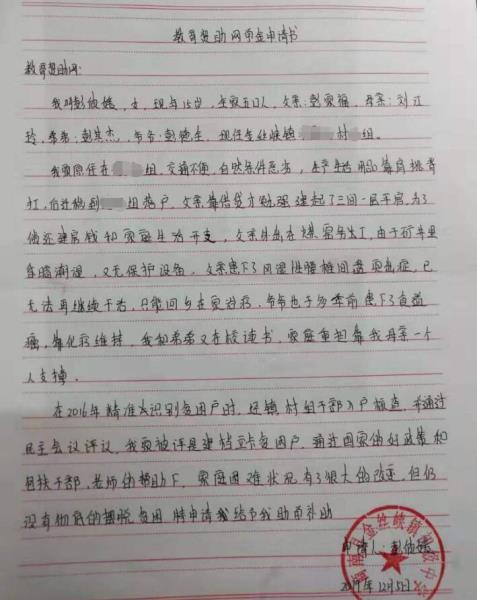 教育资助网助金申请书
教育资助网:
我叫彭 ,女,现年15岁,全家五口人,父亲:彭家福,母亲:刘江
玲,弟弟:彭其杰,爷爷:彭德全,现住金丝峡镇 村 组。
我家原住在 组,交通不便,自然条件恶劣,生产生活用品靠肩挑背
扛,后迁移到 组落户,父亲靠借贷才勉强建起了三间一层平房,为了
偿还建房钱和家庭生活开支,父亲外出在煤窑务工,由于矿井里
穿脏潮湿,又无保护设备,父亲患下了风湿性腰椎间盘突出症,已
无法再继续干活,只能回乡在家治疗,爷爷也于多年前患下了直肠
癌,靠化疗维持,我和弟弟又在校读书,家庭重担靠我母亲一个
人支撑。
在2016年精准识别贫困户时,经镇村组干部入户核查,并通过
民主会议评议,我家被评是建档立卡贫困户,通过国家的好政策和
帮扶干部、老师的帮助下,家庭困难状况有了很大的改变,但仍
没有彻底的摆脱贫困 特申请我给予我助 补助
申请人:彭
2019年12月5日
金丝峡镇 中